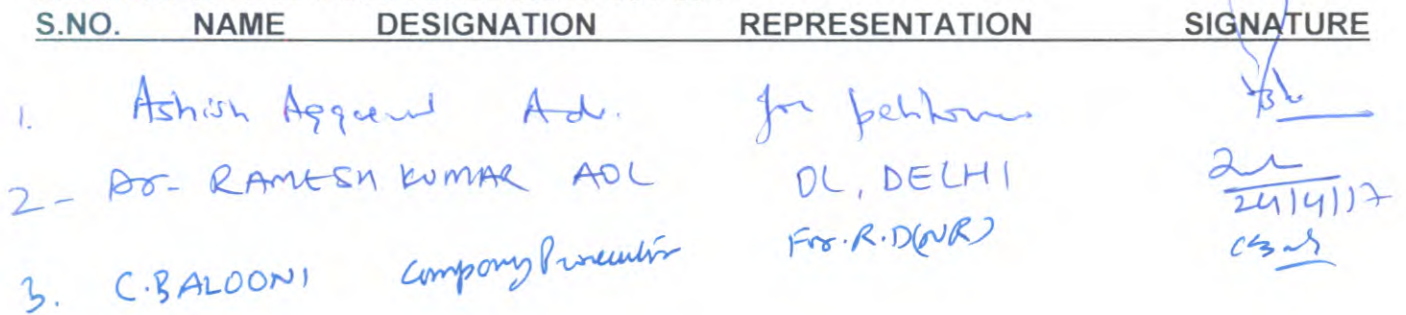 S.NO. NAME DESIGNATION REPRESENTATION SIGNATURE
1. Ashish Aggarwal Adv. for petitioner
2- Dr- RAMESH KUMAR AOL OL, DELHI 24/4/17
3. C.BALOONI Company Prosecutor For.R.D(NR)